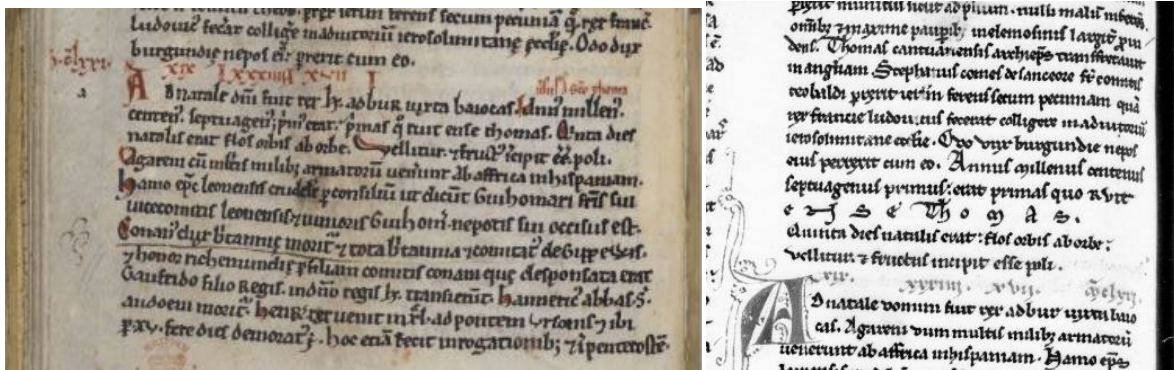 ludouic' fecat collige in adiutoriū ierosolimitane ęcclię. Odo dux
burgundię nepos ei' prexit cum eo.
xix lxxxiiii xvii I
Ad natale dni fuit rex h. ad bur iuxta baiocas. Annus millen'
centen' septuagen' prim' erat. primas q ruit ense thomas. Quinta dies
natalis erat flos orbis ab orbe. Vellitur. & fruct' icipit ee poli.
Agareni cū multis milib; armatorū uenerunt ab affrica in hispaniam.
hamo epc leonensis crudelit p consiliū ut dicunt Guihomari fris sui
uicecomitis leonensis & iunioris Guihom nepotis sui occisus est.
Conan' dux britannię morit' & tota britannia & comitat' de Gippewis.
& honor richemundię p filiam comitis conani quę desponsata erat
Gaufrido filio Regis. in dnio regis h. transierunt. hameric' abbas S.
audoeni morit'. henr' rex uenit ad pontem Ursonis & ibi
p xv. fere dies demorat'. hoc etiā fecit in rogationib; & i pentecostē.
omib; & maxime paupib; in elemosinis largit'
dens. Thomas cantuariensis archieps transfretauit
in angliam Stephanus comes de sanceore fr comitis
teobaldi prexit ier'm ferens secum pecuniam quā
rex francie ludouicus fecerat colligere in adiutoriū
ierosolimitane ecclie. Odo dux burgundie nepos
eius perrexit cum eo. Annus millenus centenus
septuagenus primus: erat primas quo ruit
e n s e Th o m a s.
Quinta dies natalis erat: flos orbis ab orbe:
vellitur. & fructus incipit esse poli.
xix. xxxiiii. xvii. mclxxi.
Ad natale domini fuit rex ad bur iuxta baio
cas. Agareni cum multis milib; armatorū
uenerunt ab affrica in hispaniam. Hamo eps